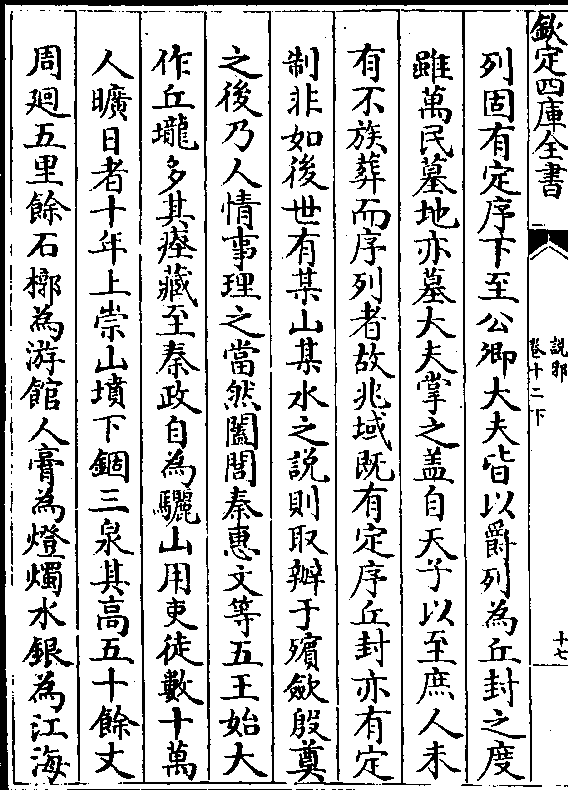 欽定四庫全書
說郛
卷十二下
十七
列固有定序下至公卿大夫皆以爵列為丘封之度
雖萬民墓地亦墓大夫掌之盖自天子以至庶人未
有不族葬而序列者故兆域既有定序丘封亦有定
制非如後世有某山某水之說則取辦于殯歛殷奠
之後乃人情事理之當然闔閭秦惠文等五王始大
作丘壠多其瘞藏至秦政自為驪山用吏徒數十萬
人曠日者十年上崇山墳下錮三泉其高五十餘丈
周廻五里餘石槨為游館人膏為燈燭水銀為江海